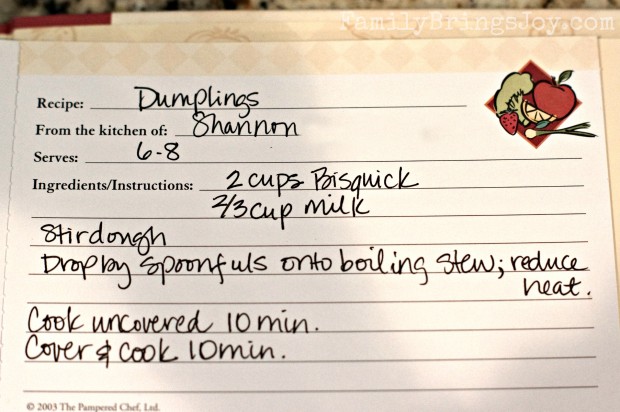 FamilyBringsJoy.com
Recipe: Dumplings
From the kitchen of: Shannon
Serves: 6-8
Ingredients/Instructions: 2 cups Bisquick
2/3 cup milk
Stir dough
Drop by spoonfuls onto boiling stew; reduce
heat.
Cook uncovered 10 min.
Cover & cook 10 min.
© 2003 The Pampered Chef, Ltd.